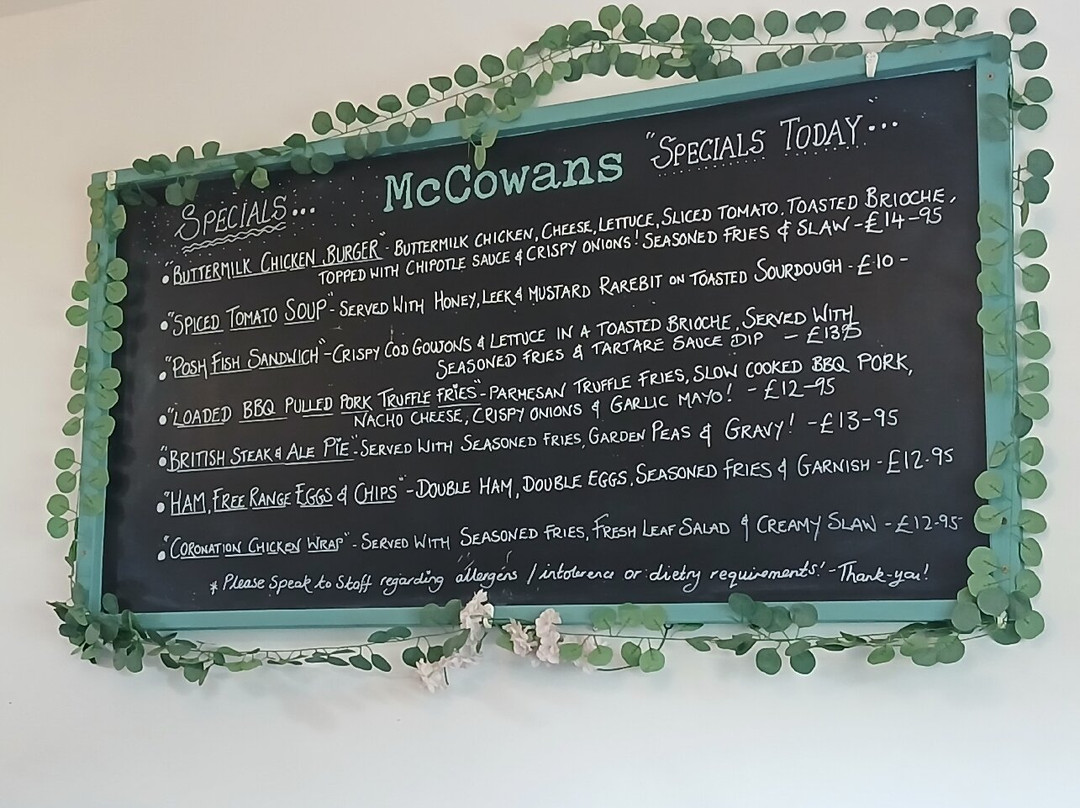 SPECIALS...
McCowans
"SPECIALS TODAY"...
• "BUTTERMILK CHICKEN BURGER" - BUTTERMILK CHICKEN, CHEESE, LETTUCE, SLICED TOMATO, TOASTED BRIOCHE,
TOPPED WITH CHIPOTLE SAUCE & CRISPY ONIONS! SEASONED FRIES & SLAW - £14-95
• "SPICED TOMATO SOUP" - SERVED WITH HONEY, LEEK & MUSTARD RAREBIT ON TOASTED SOURDOUGH - £10 -
• "POSH FISH SANDWICH" - CRISPY COD GOUJONS & LETTUCE IN A TOASTED BRIOCHE, SERVED WITH
SEASONED FRIES & TARTARE SAUCE DIP - £13.95
• "LOADED BBQ PULLED PORK TRUFFLE FRIES" - PARMESAN TRUFFLE FRIES, SLOW COOKED BBQ PORK,
NACHO CHEESE, CRISPY ONIONS & GARLIC MAYO! - £12-95
• "BRITISH STEAK & ALE PIE" - SERVED WITH SEASONED FRIES, GARDEN PEAS & GRAVY! - £13-95
• "HAM, FREE RANGE EGGS & CHIPS" - DOUBLE HAM, DOUBLE EGGS, SEASONED FRIES & GARNISH - £12.95
• "CORONATION CHICKEN WRAP" - SERVED WITH SEASONED FRIES, FRESH LEAF SALAD & CREAMY SLAW - £12-95
* Please Speak to Staff regarding allergens / intolerence or dietry requirements! - Thank-you!